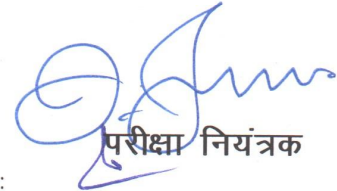 परीक्षा नियंत्रक
: